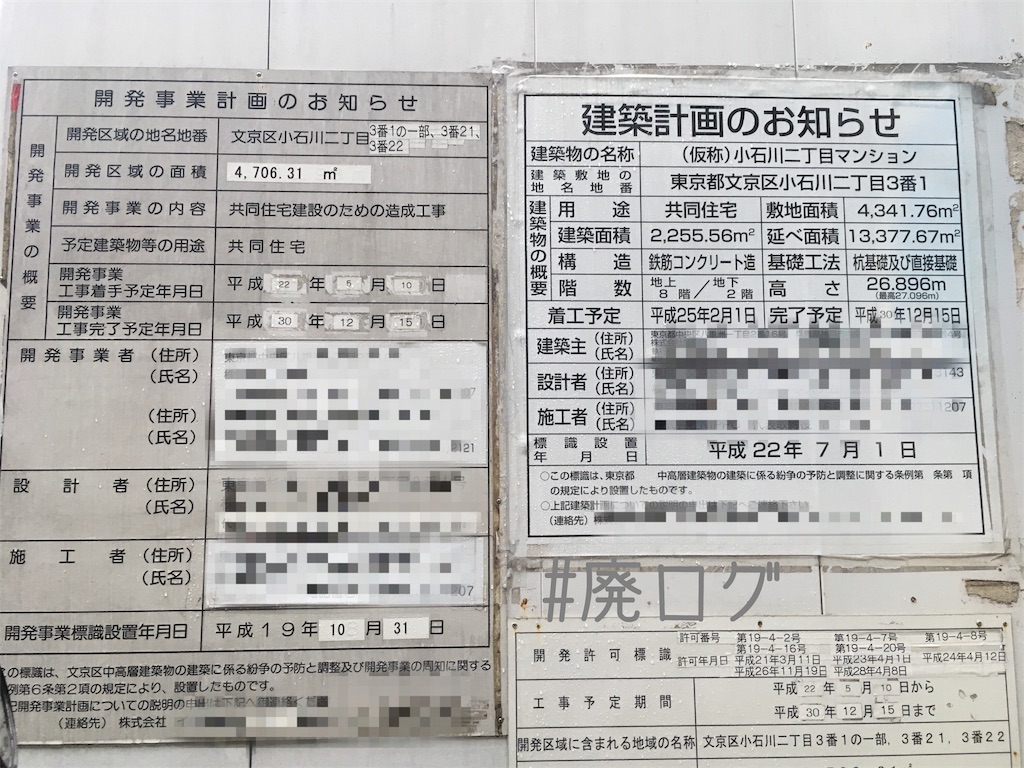 開発事業計画のお知らせ
開発事業の概要
開発区域の地名地番 文京区小石川二丁目3番1の一部、3番21、
3番22
開発区域の面積 4,706.31 ㎡
開発事業の内容 共同住宅建設のための造成工事
予定建築物等の用途 共同住宅
開発事業
工事着手予定年月日 平成 22 年 5 月 10 日
開発事業
工事完了予定年月日 平成 30 年 12 月 15 日
開発事業者(住所)
(氏名)
(住所)
(氏名)
設計者(住所)
(氏名)
施工者(住所)
(氏名)
開発事業標識設置年月日 平成19年 10 月 31 日
の標識は、文京区中高層建築物の建築に係る紛争の予防と調整及び開発事業の周知に関する
例第6条第2項の規定により、設置したものです。
記開発事業計画についての説明の
(連絡先) 株式会社
建築計画のお知らせ
建築物の名称 (仮称)小石川二丁目マンション
建築敷地の
地名地番 東京都文京区小石川二丁目3番1
建築物の概要
用途 共同住宅 敷地面積 4,341.76m²
建築面積 2,255.56m² 延べ面積 13,377.67m²
構造 鉄筋コンクリート造 基礎工法 杭基礎及び直接基礎
階数 地上8階/地下2階 高さ 26.896m
(最高27.096m)
着工予定 平成25年2月1日 完了予定 平成30年12月15日
建築主(住所)
(氏名)
設計者(住所)
(氏名)
施工者(住所)
(氏名)
標識設置
年月日 平成22年7月1日
○この標識は、東京都 中高層建築物の建築に係る紛争の予防と調整に関する条例第 条第 項
の規定により設置したものです。
○上記建築計画についての説明の申出は下記へご連絡下さい
(連絡先)
#廃ログ
開発許可標識
許可番号 第19-4-2号 第19-4-7号 第19-4-8号
第19-4-16号 第19-4-20号
許可年月日 平成21年3月11日 平成23年4月1日 平成24年4月12日
平成26年11月19日 平成28年4月8日
工事予定期間 平成 22 年 5 月 10 日から
平成 30 年 12 月 15 日まで
開発区域に含まれる地域の名称 文京区小石川二丁目3番1の一部, 3番21, 3番22